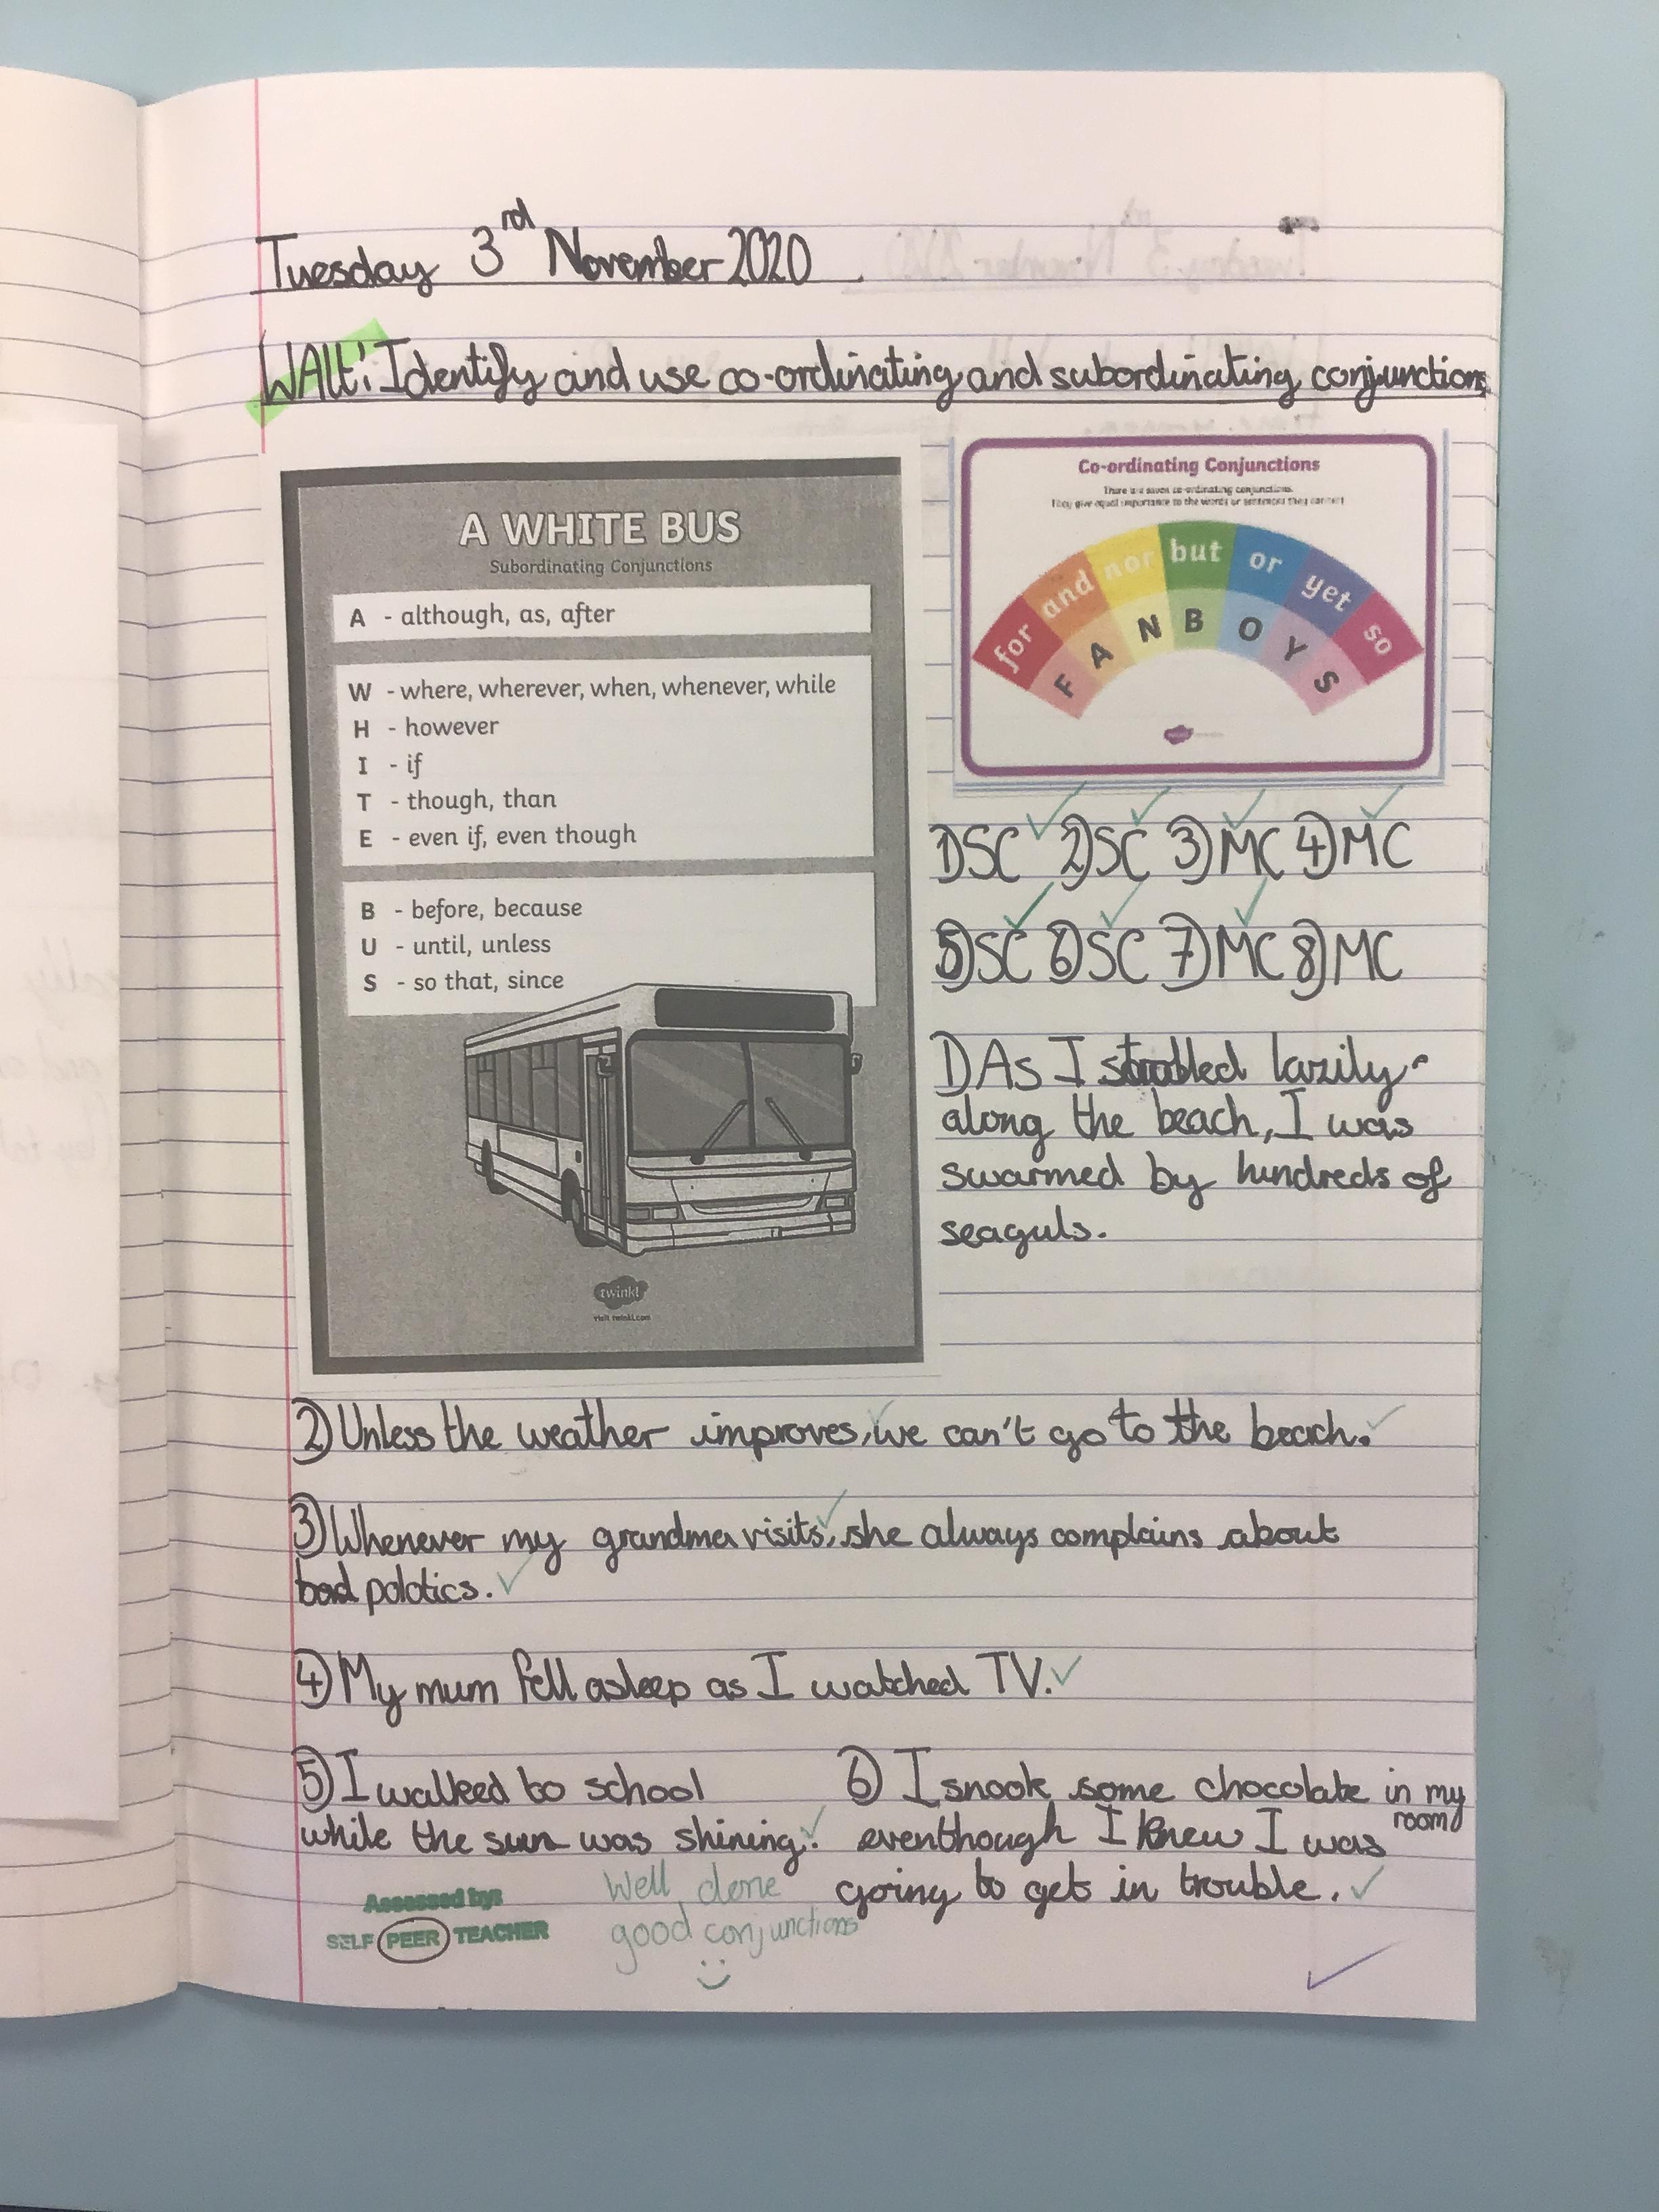 Tuesday 3rd November 2020
WALt: Identify and use co-ordinating and subordinating conjunctions
A WHITE BUS
Subordinating Conjunctions
A - although, as, after
W - where, wherever, when, whenever, while
H - however
I - if
T - though, than
E - even if, even though
B - before, because
U - until, unless
S - so that, since
twinkl
visit twinkl.com
Co-ordinating Conjunctions
There are seven co-ordinating conjunctions.
They give equal importance to the words or sentences they connect
for and nor but or yet so
F A N B O Y S
1) SC 2) SC 3) MC 4) MC
5) SC 6) SC 7) MC 8) MC
1) As I lazily
along the beach, I was
swarmed by hundreds of
seaguls.
2) Unless the weather improves, we can't go to the beach.
3) Whenever my grandma visits, she always complains about
bad polotics.
4) My mum fell asleep as I watched TV.
5) I walked to school
while the sun was shining.
6) I snook some chocolate in my
room
eventhough I knew I was
going to get in trouble.
Assessed by:
SELF PEER TEACHER
Well done
good conjunctions